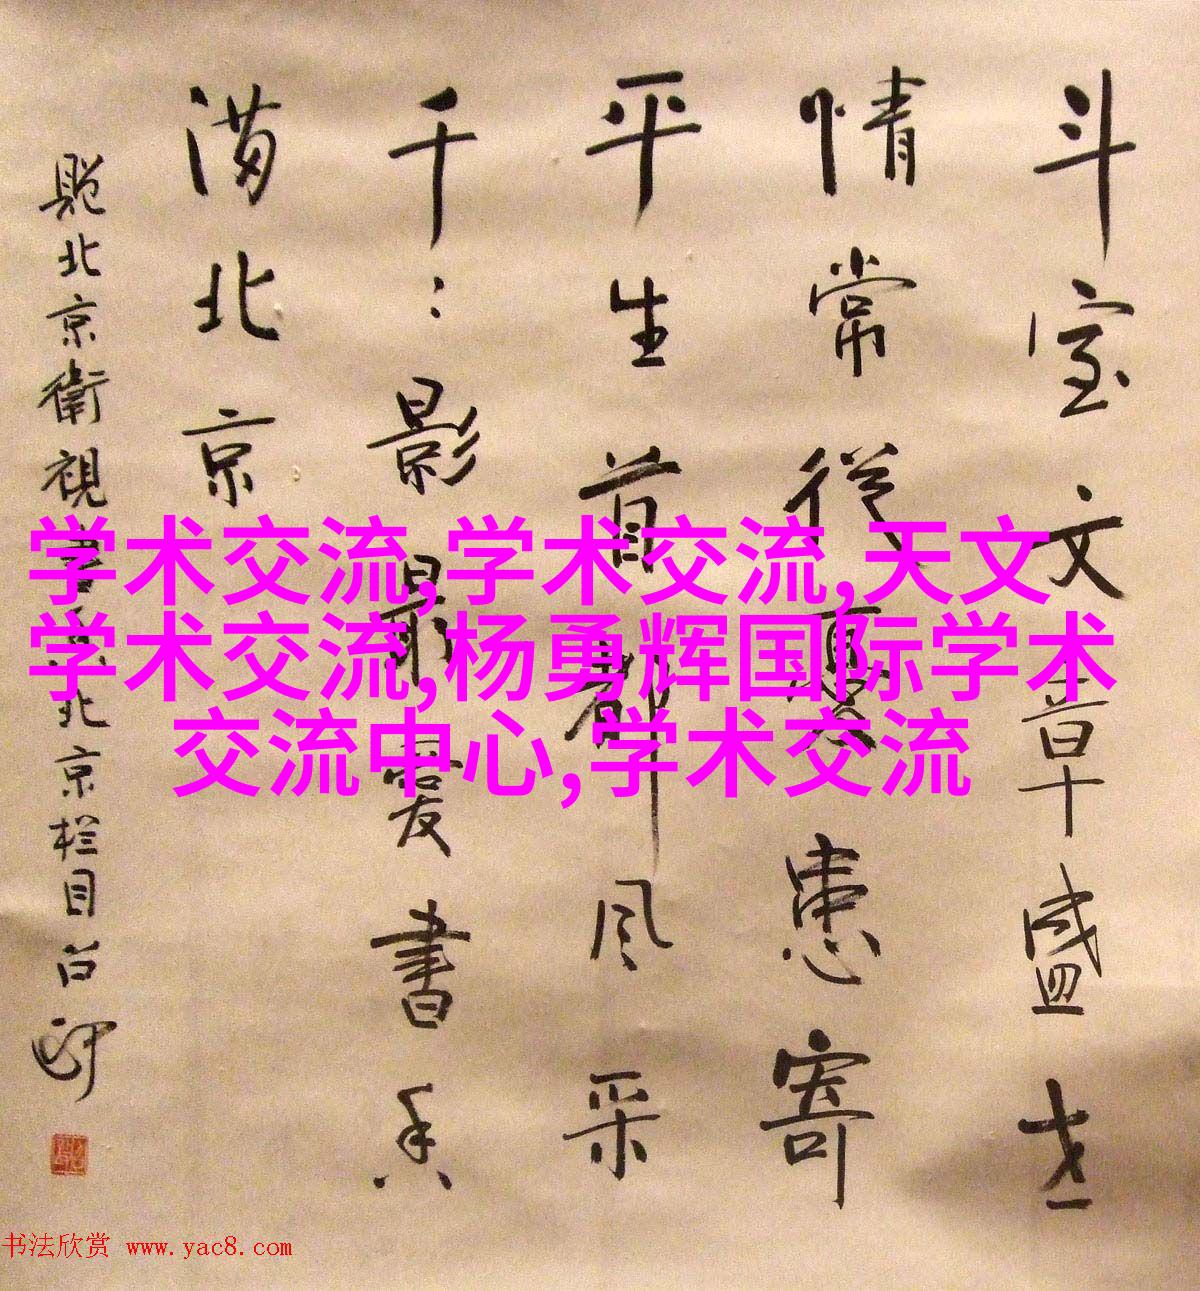 斗室文章盛世
情常從憂患寄
平生首都风采
千：影最愛書香
满北京
觀北京衛視書香北京栏目有
学术交流,学术交流,天文
学术交流,杨勇辉国际学术
交流中心,学术交流
书法欣赏 www.yac8.com